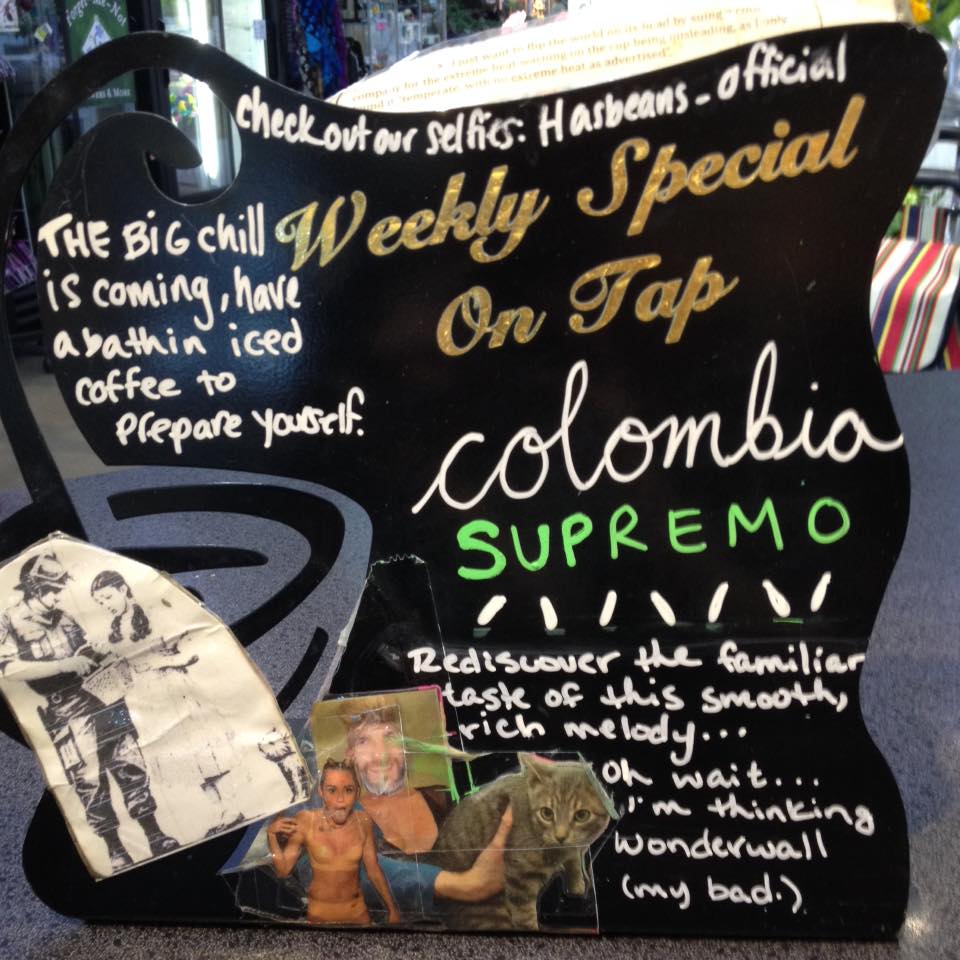 Forget-Me-Not
& MORE
"I just want to flip the world on its head by suing
company for the extreme heat warning on the cup being misleading, as I only
found it "temperate, with no extreme heat as advertised".
check out our selfies: Hasbeans - official
Weekly Special
On Tap
THE BiG chill
is coming, have
a bath in iced
coffee to
prepare yourself.
colombia
SUPREMO
Rediscover the familiar
taste of this smooth,
rich melody...
oh wait...
I'm thinking
wonderwall
(my bad.)